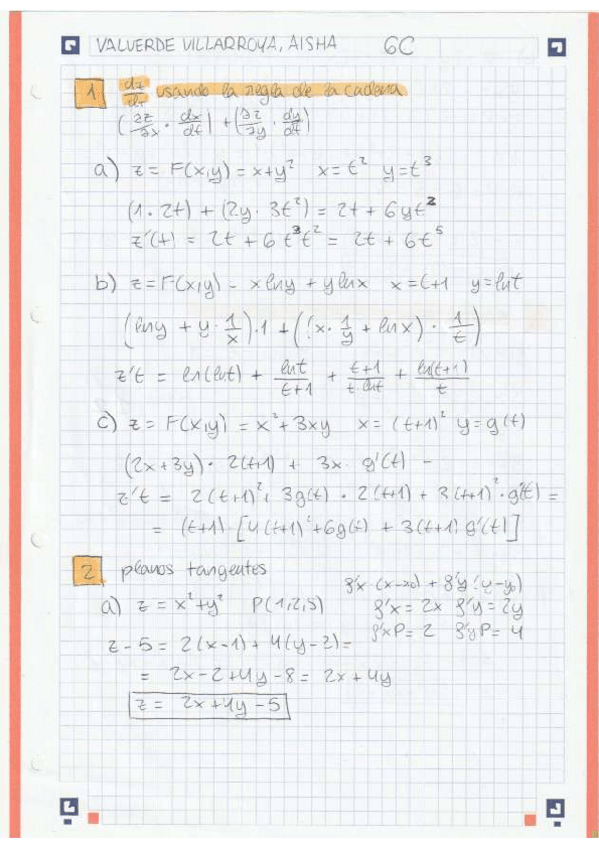 VALVERDE VILLARROYA, AISHA 6C
1 dz/dt usando la regla de la cadena
(∂z/∂x · dx/dt) + (∂z/∂y · dy/dt)
a) z = F(x,y) = x+y² x=t² y=t³
(1·2t) + (2y·3t²) = 2t + 6yt²
z'(t) = 2t + 6t³t² = 2t + 6t⁵
b) z=F(x,y) - xlny + ylnx x=t+1 y=lnt
(lny + y·1/x)·1 + (x·1/y + lnx)·1/t)
z't = ln(lnt) + lnt/t+1 + t+1/t·lnt + ln(t+1)/t
c) z = F(x,y) = x²+3xy x=(t+1)² y=g(t)
(2x+3y)·2(t+1) + 3x·g'(t) -
z't = 2(t+1)²+3g(t)·2(t+1)+3(t+1)²·g'(t) =
= (t+1)·[4(t+1)²+6g(t)+3(t+1)g'(t)]
2 planos tangentes
g'x·(x-x₀)+g'y(y-y₀)
a) z = x²+y² P(1,2,5) g'x=2x g'y=2y
g'xP=2 g'yP=4
z-5 = 2(x-1)+4(y-2)=
= 2x-2+4y-8 = 2x+4y
z = 2x+4y-5